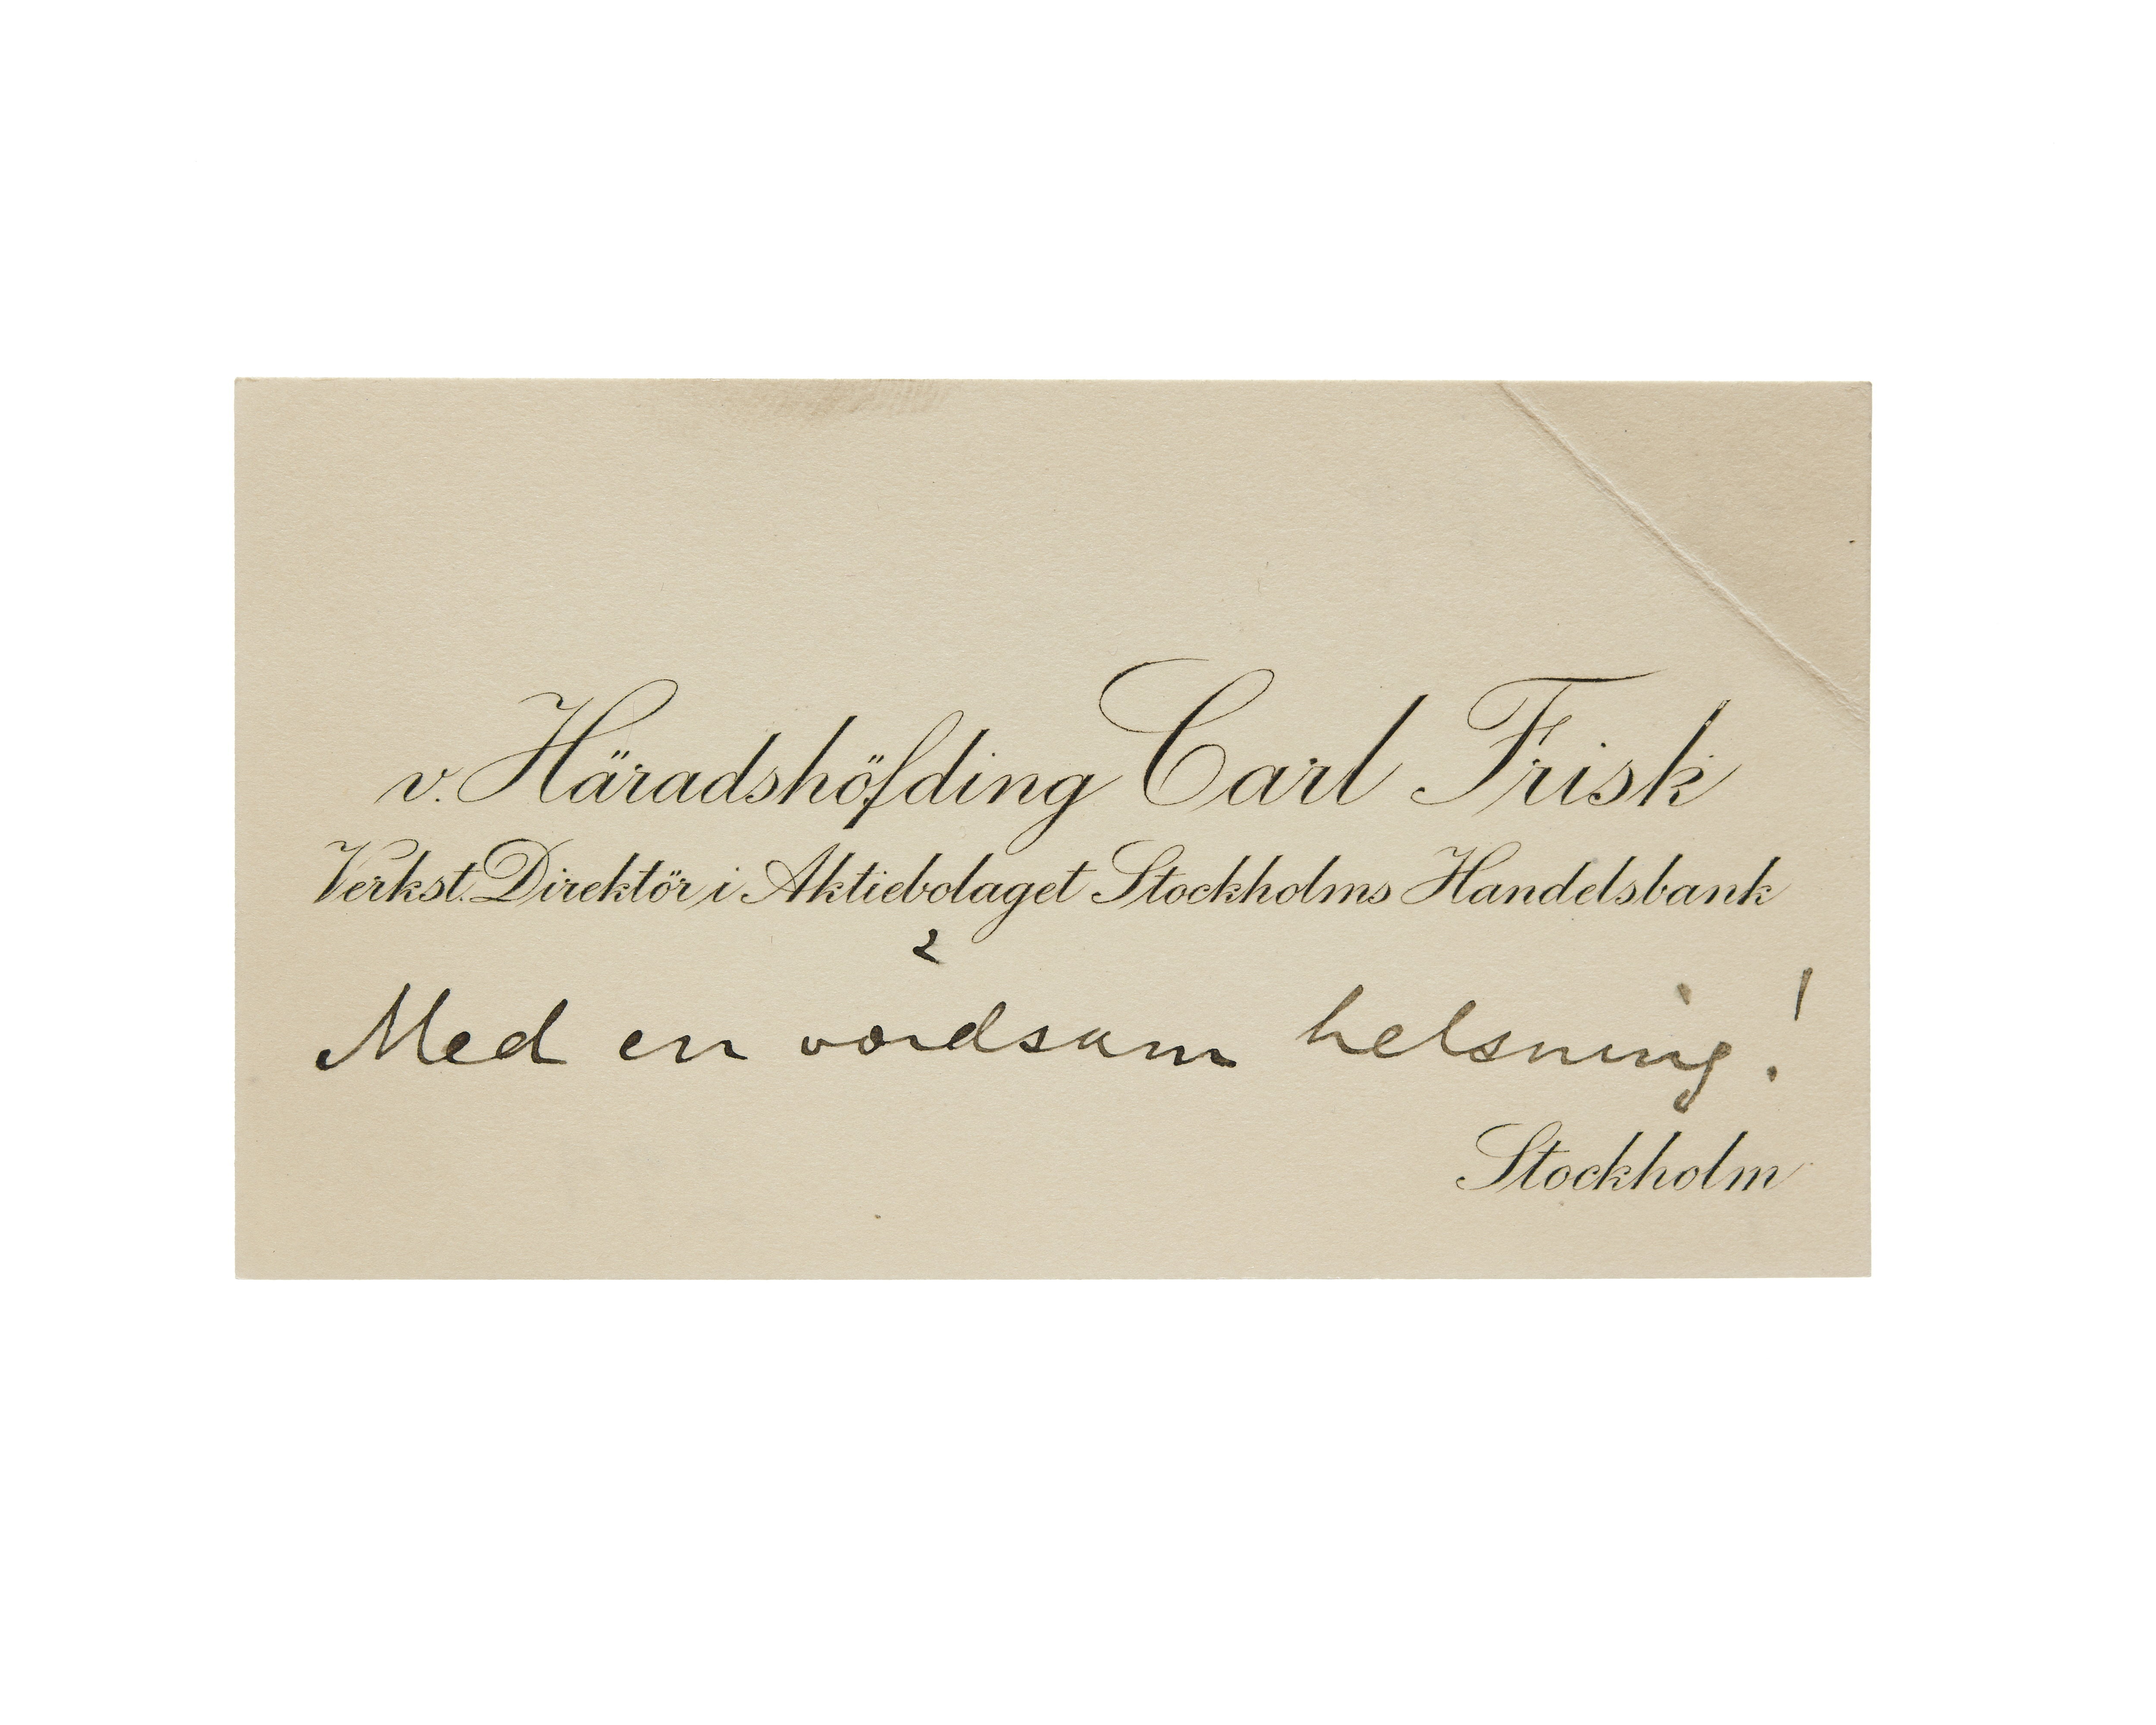 v. Häradshöfding Carl Frisk
Verkst. Direktör i Aktiebolaget Stockholms Handelsbank
Med en vördsam helsning!
Stockholm